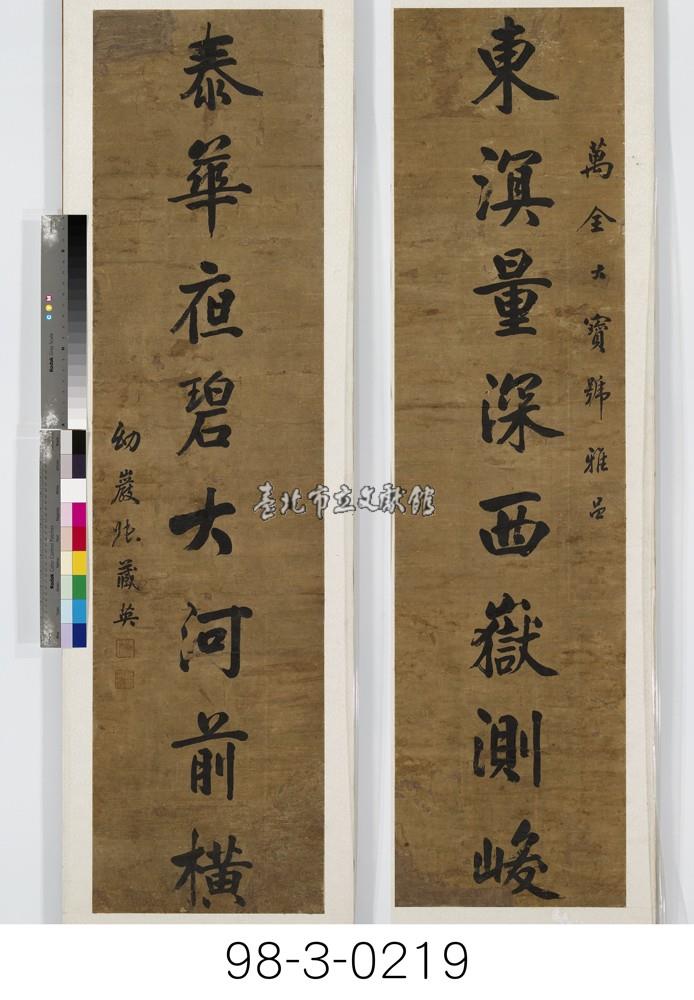 萬全大寶號雅呂
東溟量深西嶽測峻
泰華夜碧大河前橫
幼巖張藏英
臺北市立文獻館
98-3-0219